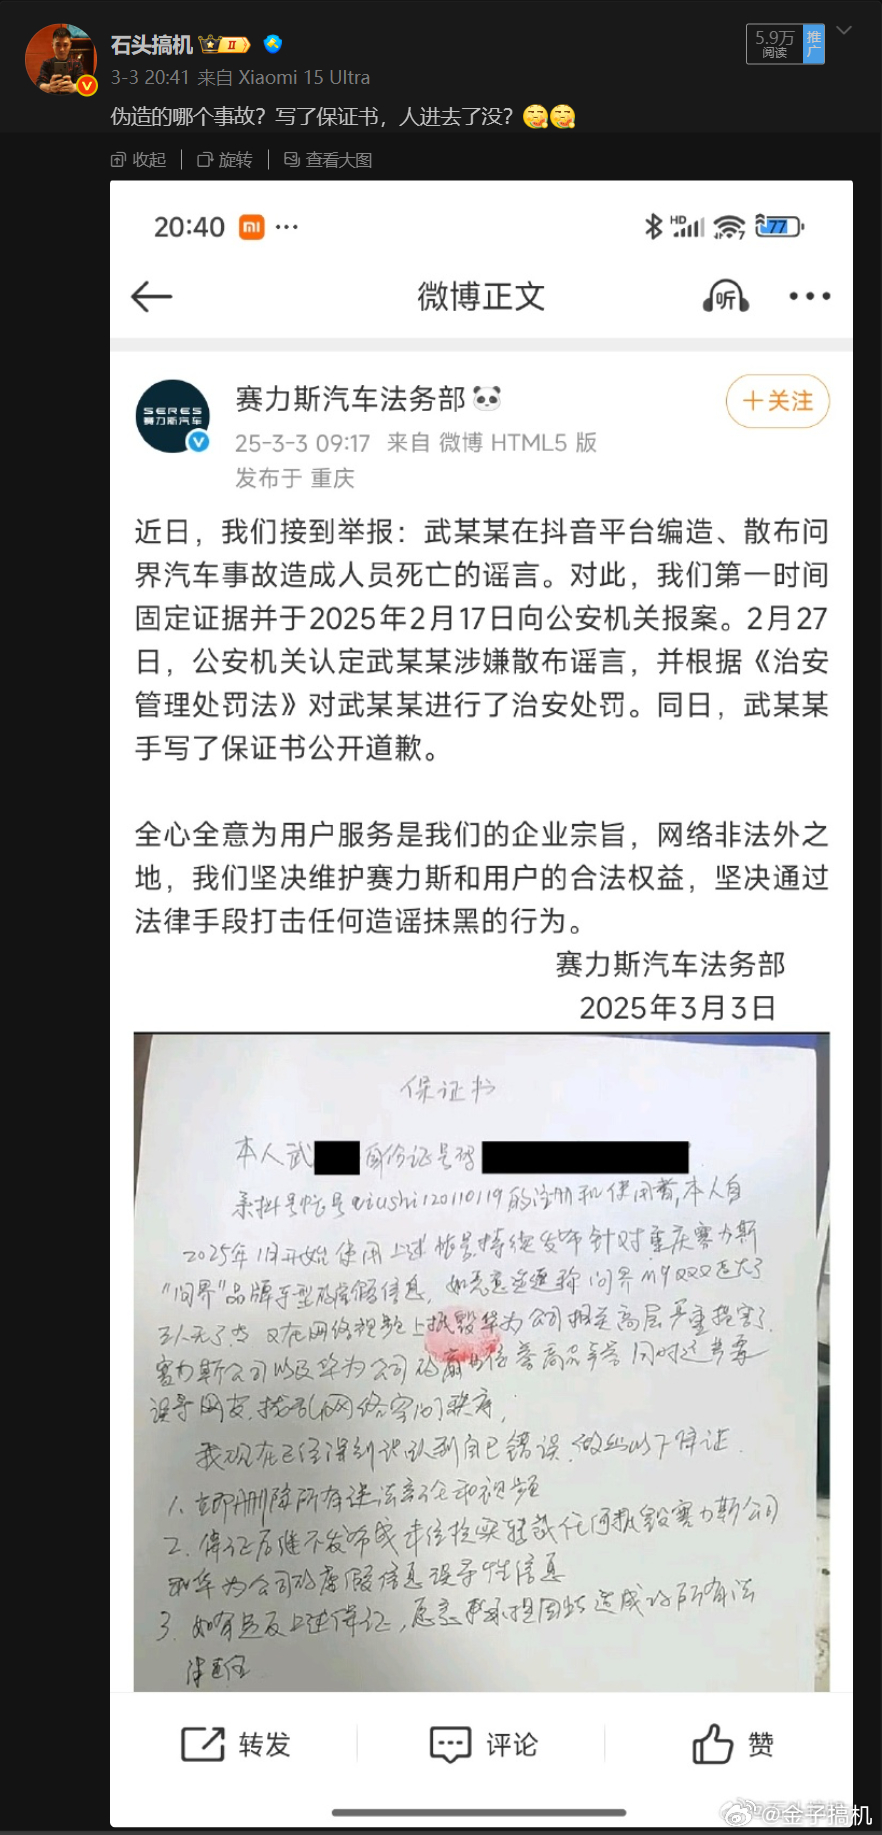 石头搞机 II
3-3 20:41 来自 Xiaomi 15 Ultra
5.9万
阅读
推广
伪造的哪个事故？写了保证书，人进去了没？
收起 | 旋转 | 查看大图
20:40 ··· HD 7 77
微博正文 听
赛力斯汽车法务部
SERES
赛力斯汽车
25-3-3 09:17 来自 微博 HTML5 版
发布于 重庆
＋关注
近日，我们接到举报：武某某在抖音平台编造、散布问
界汽车事故造成人员死亡的谣言。对此，我们第一时间
固定证据并于2025年2月17日向公安机关报案。2月27
日，公安机关认定武某某涉嫌散布谣言，并根据《治安
管理处罚法》对武某某进行了治安处罚。同日，武某某
手写了保证书公开道歉。
全心全意为用户服务是我们的企业宗旨，网络非法外之
地，我们坚决维护赛力斯和用户的合法权益，坚决通过
法律手段打击任何造谣抹黑的行为。
赛力斯汽车法务部
2025年3月3日
保证书
本人武 身份证号码
系抖号帐号 的注册和使用者，本人自
2025年1月开始使用上述帐号持续发布针对重庆赛力斯
"问界"品牌车型的虚假信息，如恶意造谣称问界m9
三人 在网络视频上抵毁华为公司相关高层严重损害了
赛力斯公司以及华为公司的商业信誉商品声誉同时
误导网友，扰乱网络空间秩序，
我现在已经深刻认识到自己错误，做出以下保证.
1、立即删除所有违法言论和视频
2、保证后继不发布或未经核实转载任何抵毁赛力斯公司
和华为公司的虚假信息误导性信息
3、如有违反上述保证，愿意承担因此造成的所有法
律责任
转发 评论 赞
@金子搞机